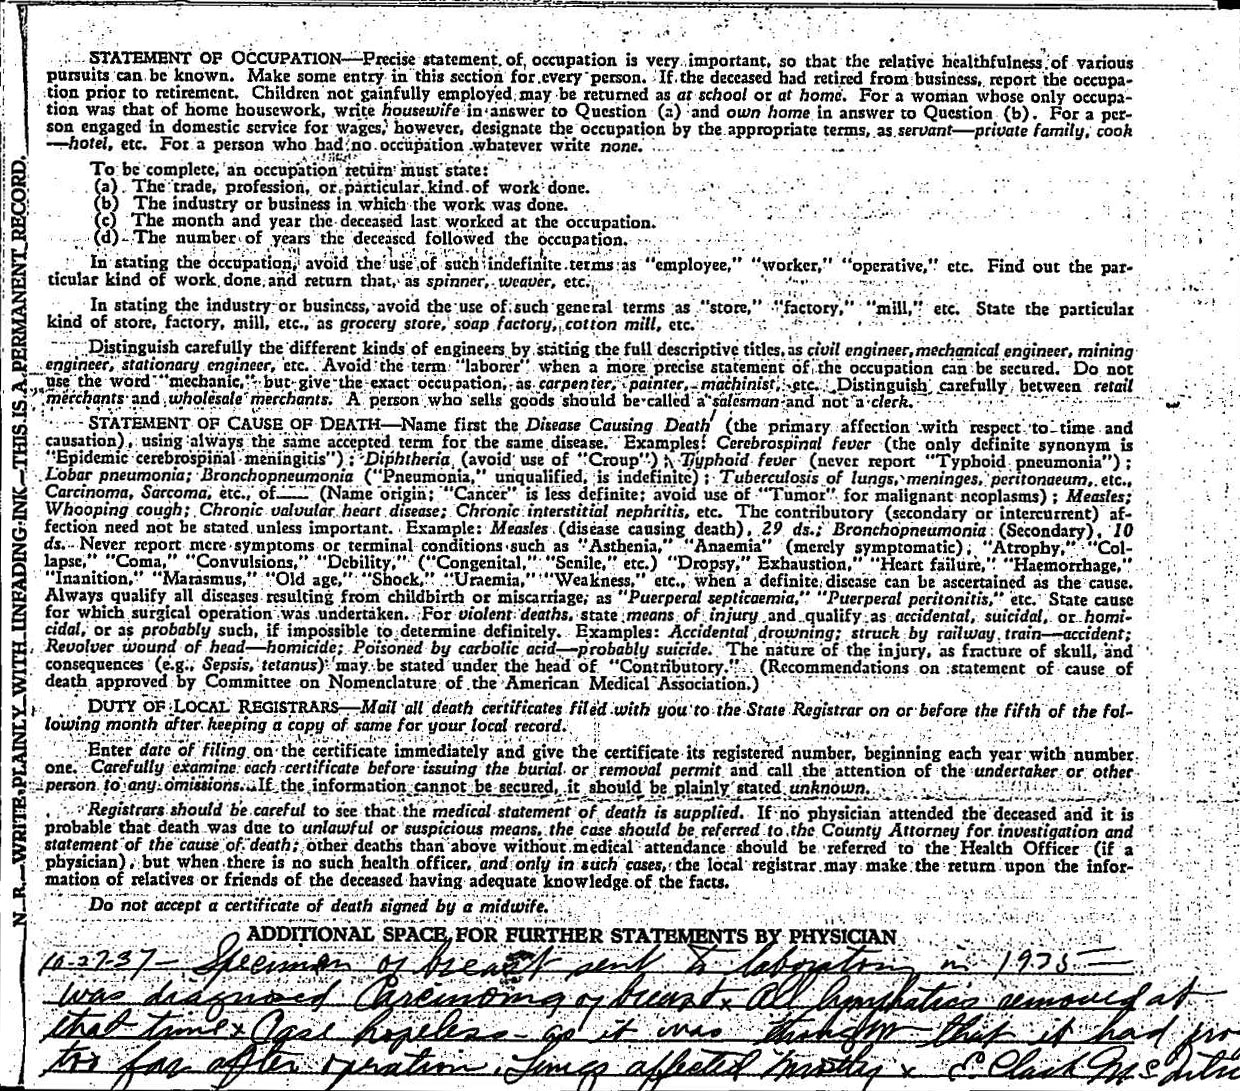 STATEMENT OF OCCUPATION—Precise statement of occupation is very important, so that the relative healthfulness of various
pursuits can be known. Make some entry in this section for every person. If the deceased had retired from business, report the occupa-
tion prior to retirement. Children not gainfully employed may be returned as at school or at home. For a woman whose only occupa-
tion was that of home housework, write housewife in answer to Question (a) and own home in answer to Question (b). For a per-
son engaged in domestic service for wages, however, designate the occupation by the appropriate terms, as servant—private family, cook
—hotel, etc. For a person who had no occupation whatever write none.
To be complete, an occupation return must state:
(a) The trade, profession, or particular kind of work done.
(b) The industry or business in which the work was done.
(c) The month and year the deceased last worked at the occupation.
(d) The number of years the deceased followed the occupation.
In stating the occupation, avoid the use of such indefinite terms as "employee," "worker," "operative," etc. Find out the par-
ticular kind of work done and return that, as spinner, weaver, etc.
In stating the industry or business, avoid the use of such general terms as "store," "factory," "mill," etc. State the particular
kind of store, factory, mill, etc., as grocery store, soap factory, cotton mill, etc.
Distinguish carefully the different kinds of engineers by stating the full descriptive titles, as civil engineer, mechanical engineer, mining
engineer, stationary engineer, etc. Avoid the term "laborer" when a more precise statement of the occupation can be secured. Do not
use the word "mechanic," but give the exact occupation, as carpenter, painter, machinist, etc. Distinguish carefully between retail
merchants and wholesale merchants. A person who sells goods should be called a salesman and not a clerk.
STATEMENT OF CAUSE OF DEATH—Name first the Disease Causing Death (the primary affection with respect to time and
causation), using always the same accepted term for the same disease. Examples: Cerebrospinal fever (the only definite synonym is
"Epidemic cerebrospinal meningitis"); Diphtheria (avoid use of "Croup"); Typhoid fever (never report "Typhoid pneumonia");
Lobar pneumonia; Bronchopneumonia ("Pneumonia," unqualified, is indefinite); Tuberculosis of lungs, meninges, peritonaeum, etc.,
Carcinoma, Sarcoma, etc., of ____ (Name origin; "Cancer" is less definite; avoid use of "Tumor" for malignant neoplasms); Measles;
Whooping cough; Chronic valvular heart disease; Chronic interstitial nephritis, etc. The contributory (secondary or intercurrent) af-
fection need not be stated unless important. Example: Measles (disease causing death), 29 ds.; Bronchopneumonia (Secondary), 10
ds. Never report mere symptoms or terminal conditions such as "Asthenia," "Anaemia" (merely symptomatic), "Atrophy," "Col-
lapse," "Coma," "Convulsions," "Debility," ("Congenital," "Senile," etc.) "Dropsy," Exhaustion," "Heart failure," "Haemorrhage,"
"Inanition," "Marasmus," "Old age," "Shock," "Uraemia," "Weakness," etc., when a definite disease can be ascertained as the cause.
Always qualify all diseases resulting from childbirth or miscarriage, as "Puerperal septicaemia," "Puerperal peritonitis," etc. State cause
for which surgical operation was undertaken. For violent deaths, state means of injury and qualify as accidental, suicidal, or homi-
cidal, or as probably such, if impossible to determine definitely. Examples: Accidental drowning; struck by railway train—accident;
Revolver wound of head—homicide; Poisoned by carbolic acid—probably suicide. The nature of the injury, as fracture of skull, and
consequences (e.g., Sepsis, tetanus) may be stated under the head of "Contributory." (Recommendations on statement of cause of
death approved by Committee on Nomenclature of the American Medical Association.)
DUTY OF LOCAL REGISTRARS—Mail all death certificates filed with you to the State Registrar on or before the fifth of the fol-
lowing month after keeping a copy of same for your local record.
Enter date of filing on the certificate immediately and give the certificate its registered number, beginning each year with number
one. Carefully examine each certificate before issuing the burial or removal permit and call the attention of the undertaker or other
person to any omissions. If the information cannot be secured, it should be plainly stated unknown.
Registrars should be careful to see that the medical statement of death is supplied. If no physician attended the deceased and it is
probable that death was due to unlawful or suspicious means, the case should be referred to the County Attorney for investigation and
statement of the cause of death; other deaths than above without medical attendance should be referred to the Health Officer (if a
physician), but when there is no such health officer, and only in such cases, the local registrar may make the return upon the infor-
mation of relatives or friends of the deceased having adequate knowledge of the facts.
Do not accept a certificate of death signed by a midwife.
ADDITIONAL SPACE FOR FURTHER STATEMENTS BY PHYSICIAN
10-27-37— Specimen of breast sent to laboratory in 1935—
was diagnosed Carcinoma of breast x All lymphatics removed at
that time x Case hopeless as it was thought that it had
too far after operation. Lungs affected mostly x E Clark
N. B.—WRITE PLAINLY WITH UNFADING INK—THIS IS A PERMANENT RECORD.